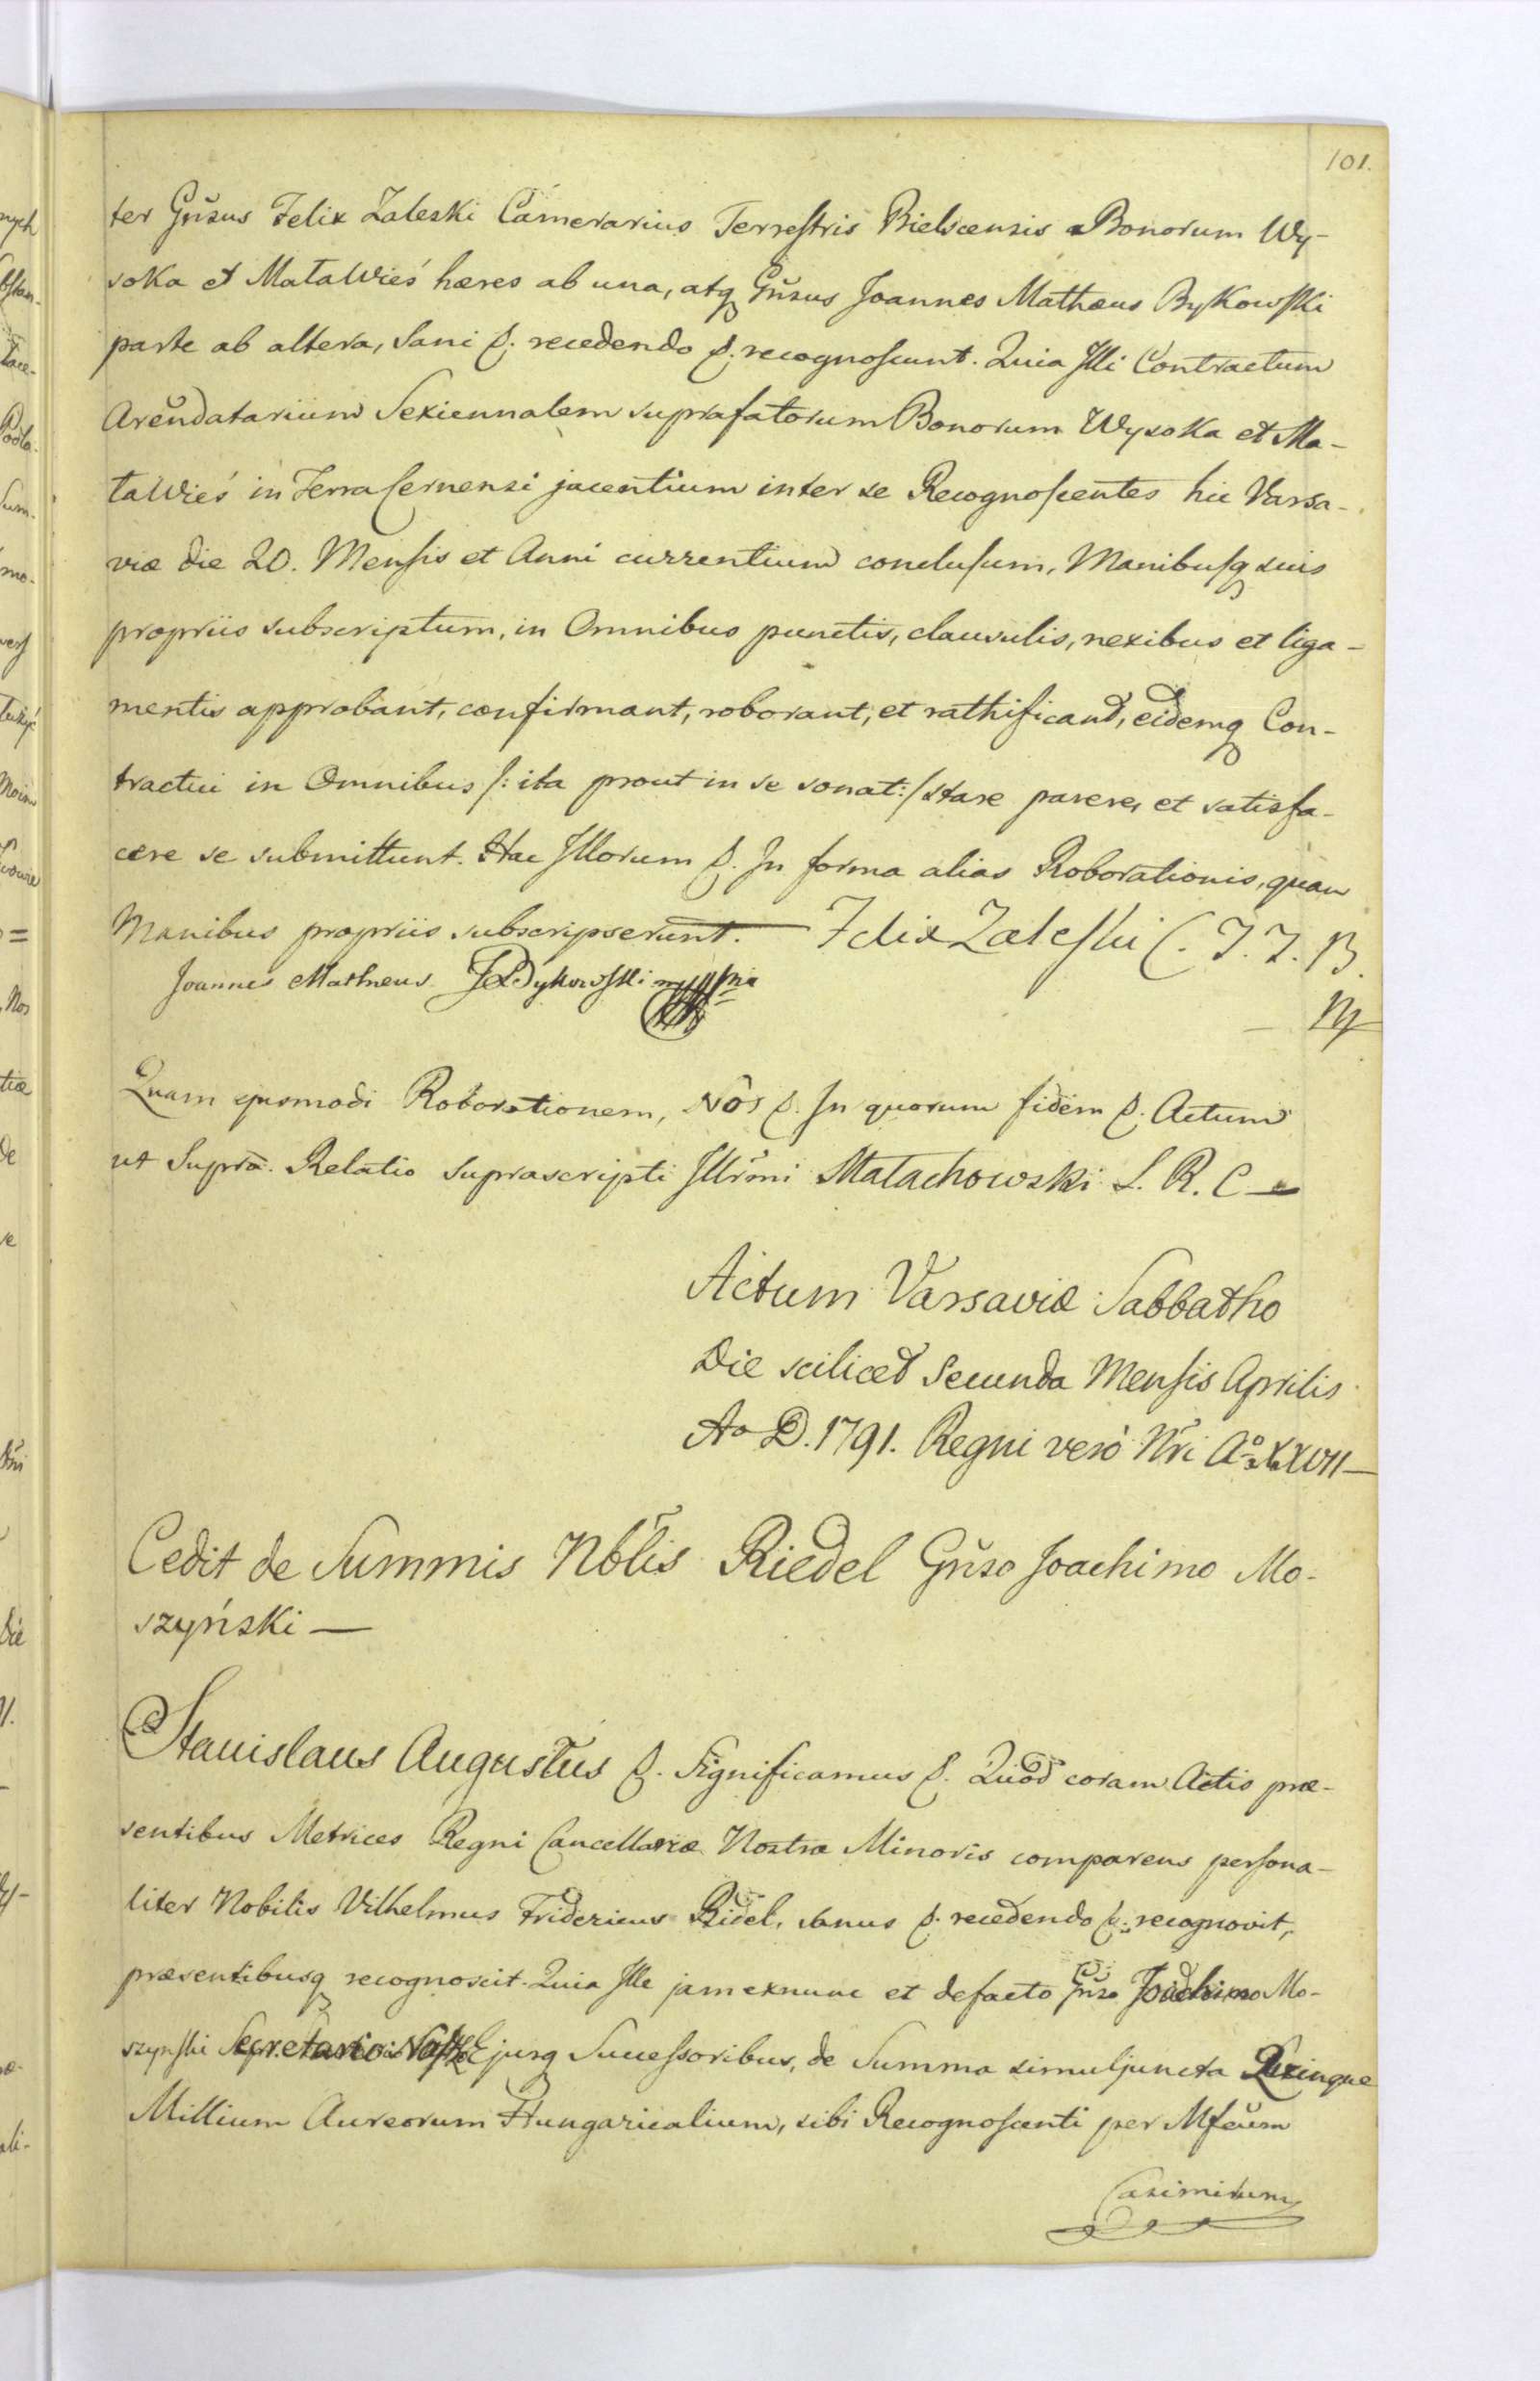 101.
ter Gnsus Felix Zaleski Camerarius Terrestris Bielscensis Bonorum Wy-
soka et MałaWieś hæres ab una, atq Gnsus Joannes Mathæus Bykowski
parte ab altera, Sani &. recedendo &. recognoscunt. Quia Illi Contractum
Arendatarium Sexiennalem suprafatorum Bonorum Wysoka et Ma-
łaWieś in Terra Cernensi jacentium inter se Recognoscentes hic Varsa-
viæ die 20. Mensis et Anni currentium conclusum, Manibusq suis
propriis subscriptum, in Omnibus punctis, clausulis, nexibus et liga-
mentis approbant, confirmant, roborant, et rathificant, eidemq Con-
tractui in Omnibus /: ita prout in se sonat :/ stare parere, et satisfa-
cere se submittunt. Hac Illorum &. In forma alias Roborationis, quam
Manibus propriis subscripserunt. — Felix Zaleski C. Z. B.
Joannes Matheus Bykowski mpria
Mp
Quam ejusmodi Roborationem, Nos &. In quorum fidem &. Actum
ut Supra. Relatio suprascripti Illrmi Małachowski S. R. C —
Actum Varsaviæ Sabbatho
Die scilicet Secunda Mensis Aprilis
Ao D. 1791. Regni vero Nri Ao XXVII —
Cedit de Summis Nblis Riedel Gnso Joachimo Mo-
szyński —
Stanislaus Augustus &. Significamus &. Quod coram Actis præ-
sentibus Metrices Regni Cancellariæ Nostræ Minoris comparens persona-
liter Nobilis Vilhelmus Fridericus Ridel, sanus &. recedendo &. recognovit,
præsentibusq recognoscit. Quia Ille jam exnunc et defacto Gnso Joachimo Mo-
szynski Secretario Ejusq Successoribus, de Summa simuljuncta Quinque
Millium Aureorum Hungaricalium, sibi Recognoscenti per Mfcum
Casimirum